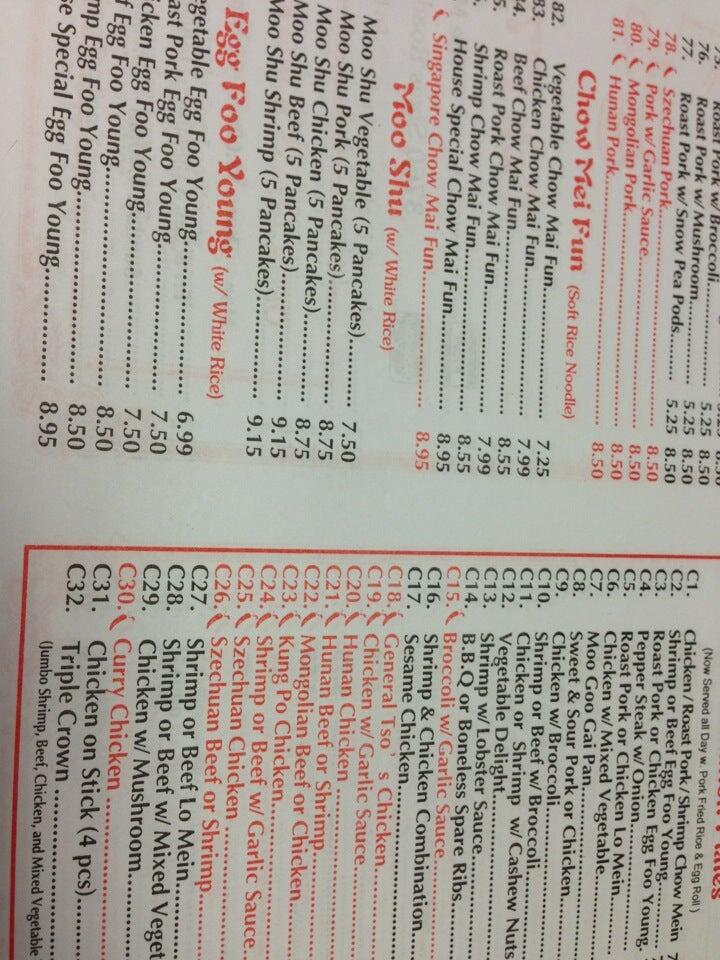 Roast Pork w/ Broccoli
76. Roast Pork w/ Mushroom 5.25 8.50
77. Roast Pork w/ Snow Pea Pods 5.25 8.50
78. Szechuan Pork 5.25 8.50
79. Pork w/ Garlic Sauce 8.50
80. Mongolian Pork 8.50
81. Hunan Pork 8.50
Chow Mei Fun (Soft Rice Noodle)
82. Vegetable Chow Mai Fun 7.25
83. Chicken Chow Mai Fun 7.99
84. Beef Chow Mai Fun 8.55
Roast Pork Chow Mai Fun 7.99
Shrimp Chow Mai Fun 8.55
House Special Chow Mai Fun 8.95
Singapore Chow Mai Fun 8.95
Moo Shu (w/ White Rice)
Moo Shu Vegetable (5 Pancakes) 7.50
Moo Shu Pork (5 Pancakes) 8.75
Moo Shu Chicken (5 Pancakes) 8.75
Moo Shu Beef (5 Pancakes) 9.15
Moo Shu Shrimp (5 Pancakes) 9.15
Egg Foo Young (w/ White Rice)
Vegetable Egg Foo Young 6.99
Roast Pork Egg Foo Young 7.50
Egg Foo Young 7.50
Egg Foo Young 8.50
Egg Foo Young 8.50
Special Egg Foo Young 8.95
(Now Served all Day w. Pork Fried Rice & Egg Roll)
C1. Chicken / Roast Pork / Shrimp Chow Mein 7
C2. Shrimp or Beef Egg Foo Young
C3. Roast Pork or Chicken Egg Foo Young
C4. Pepper Steak w/ Onion
C5. Roast Pork or Chicken Lo Mein
C6. Chicken w/ Mixed Vegetable
C7. Moo Goo Gai Pan
C8. Sweet & Sour Pork or Chicken
C9. Chicken w/ Broccoli
C10. Shrimp or Beef w/ Broccoli
C11. Chicken or Shrimp w/ Cashew Nuts
C12. Vegetable Delight
C13. Shrimp w/ Lobster Sauce
C14. B.B.Q or Boneless Spare Ribs
C15. Broccoli w/ Garlic Sauce
C16. Shrimp & Chicken Combination
C17. Sesame Chicken
C18. General Tso's Chicken
C19. Chicken w/ Garlic Sauce
C20. Hunan Chicken
C21. Hunan Beef or Shrimp
C22. Mongolian Beef or Chicken
C23. Kung Po Chicken
C24. Shrimp or Beef w/ Garlic Sauce
C25. Szechuan Chicken
C26. Szechuan Beef or Shrimp
C27. Shrimp or Beef Lo Mein
C28. Shrimp or Beef w/ Mixed Veget
C29. Chicken w/ Mushroom
C30. Curry Chicken
C31. Chicken on Stick (4 pcs)
C32. Triple Crown
(Jumbo Shrimp, Beef, Chicken, and Mixed Vegetable